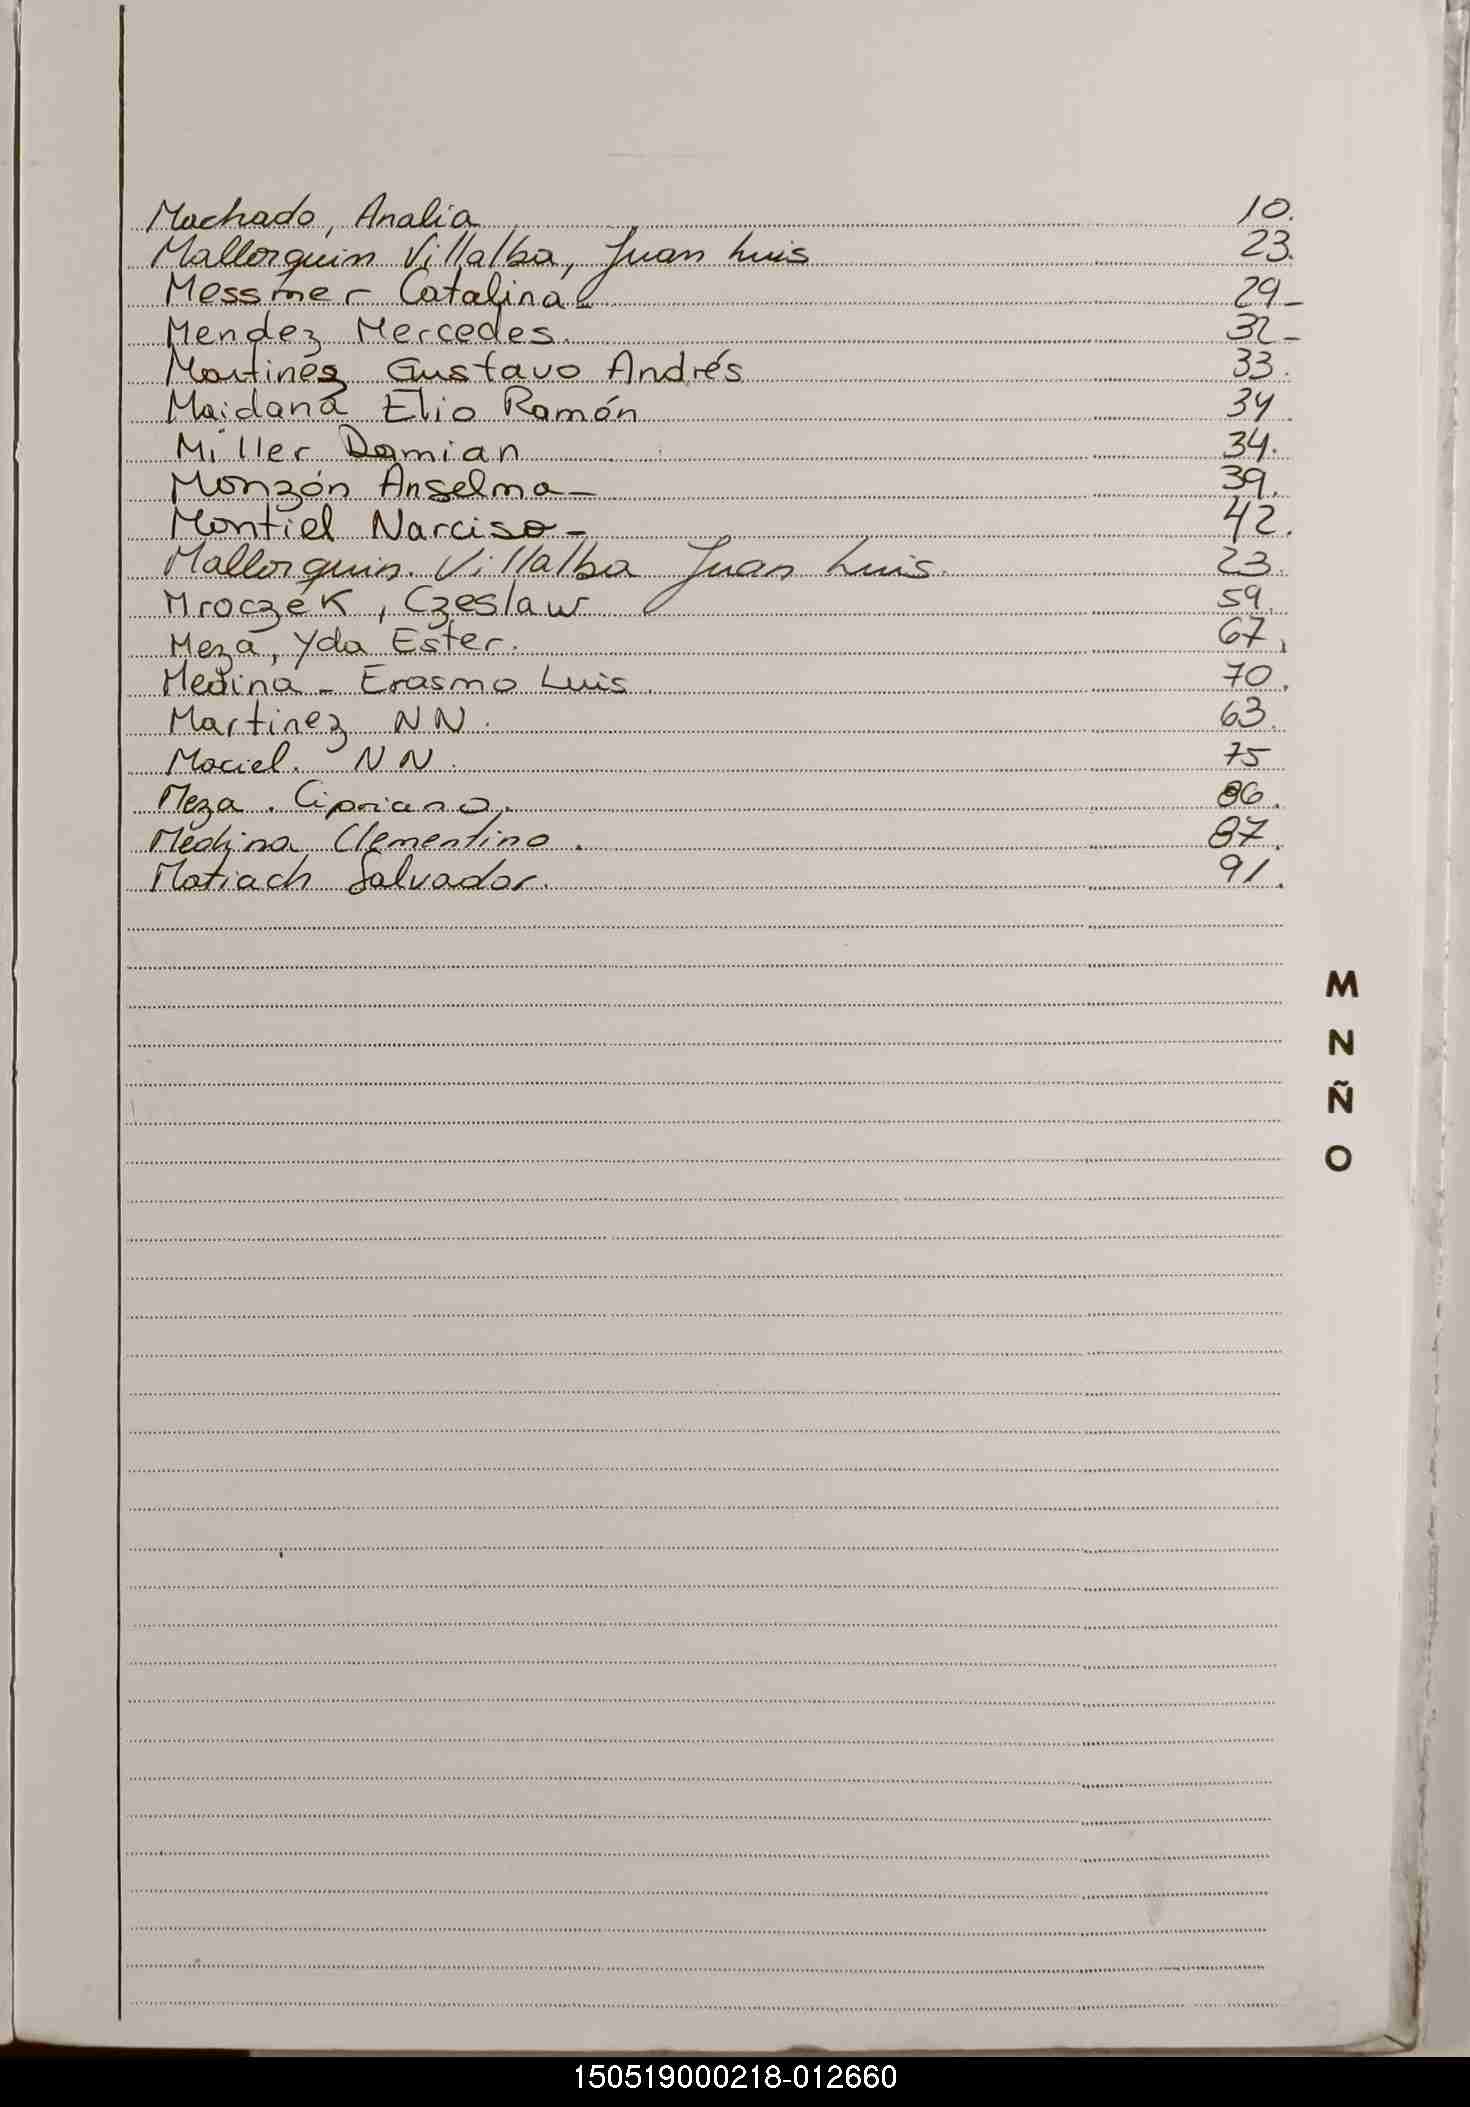 Machado, Analia 10.
Mallorquin Villalba, Juan Luis 23.
Messmer Catalina - 29-
Mendez Mercedes. 32-
Martinez Gustavo Andrés 33.
Maidana Elio Ramón 34.
Miller Damian 34.
Monzón Anselma - 39.
Montiel Narciso - 42.
Mallorquin. Villalba Juan Luis. 23.
Mroczek, Czeslaw 59.
Meza, Yda Ester. 67.
Medina - Erasmo Luis. 70.
Martinez NN. 63.
Maciel. NN. 75
Meza. Cipriano. 86.
Medina Clementino. 87.
Matiach Salvador. 91.
M
N
Ñ
O
150519000218-012660